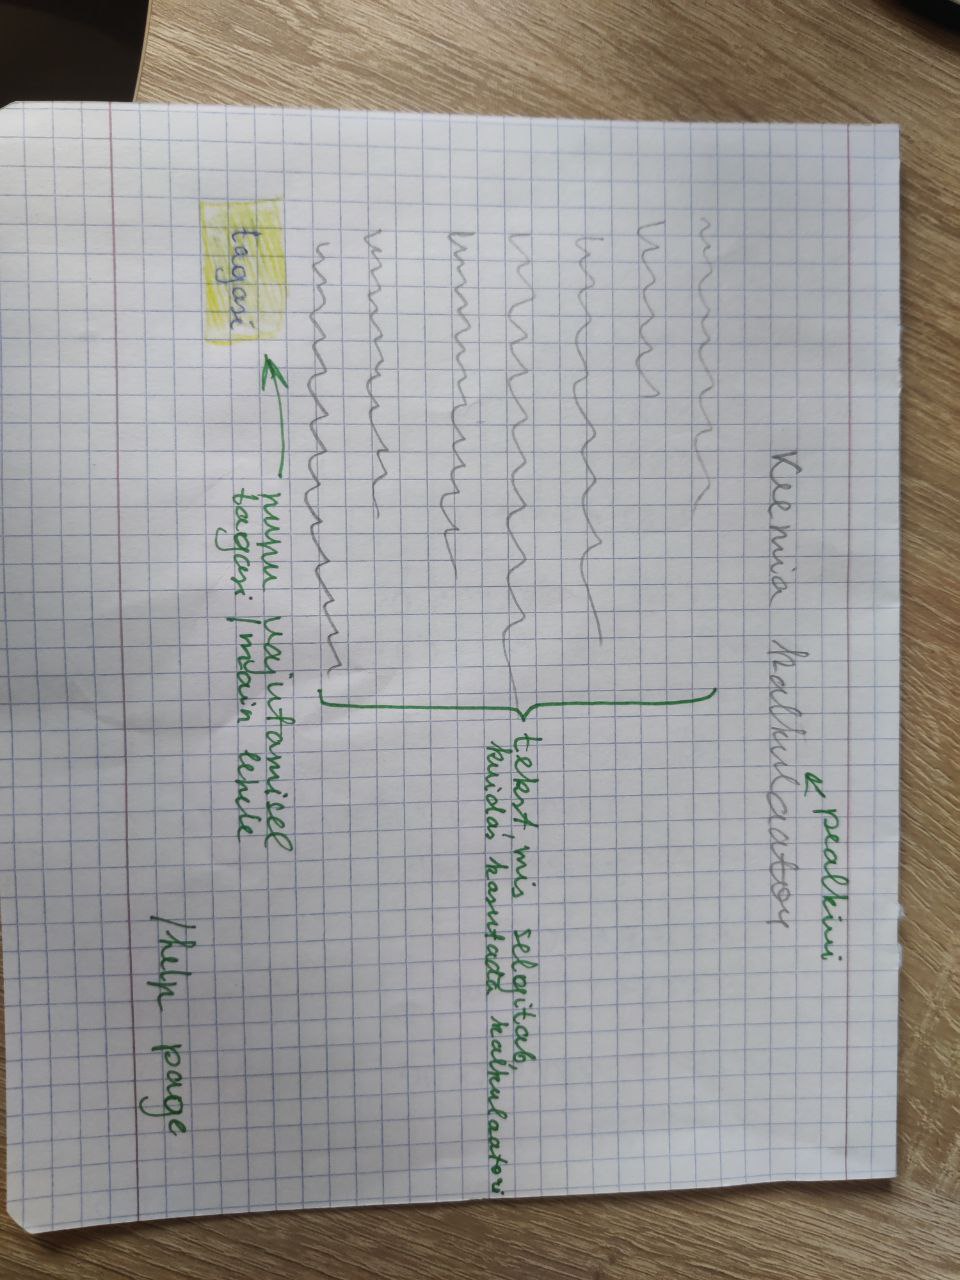 pealkiri
Keemia kalkulaator
tekst, mis selgitab,
kuidas kasutada kalkulaatori
nupu vajutamisel
tagasi /main lehele
tagasi
/help page